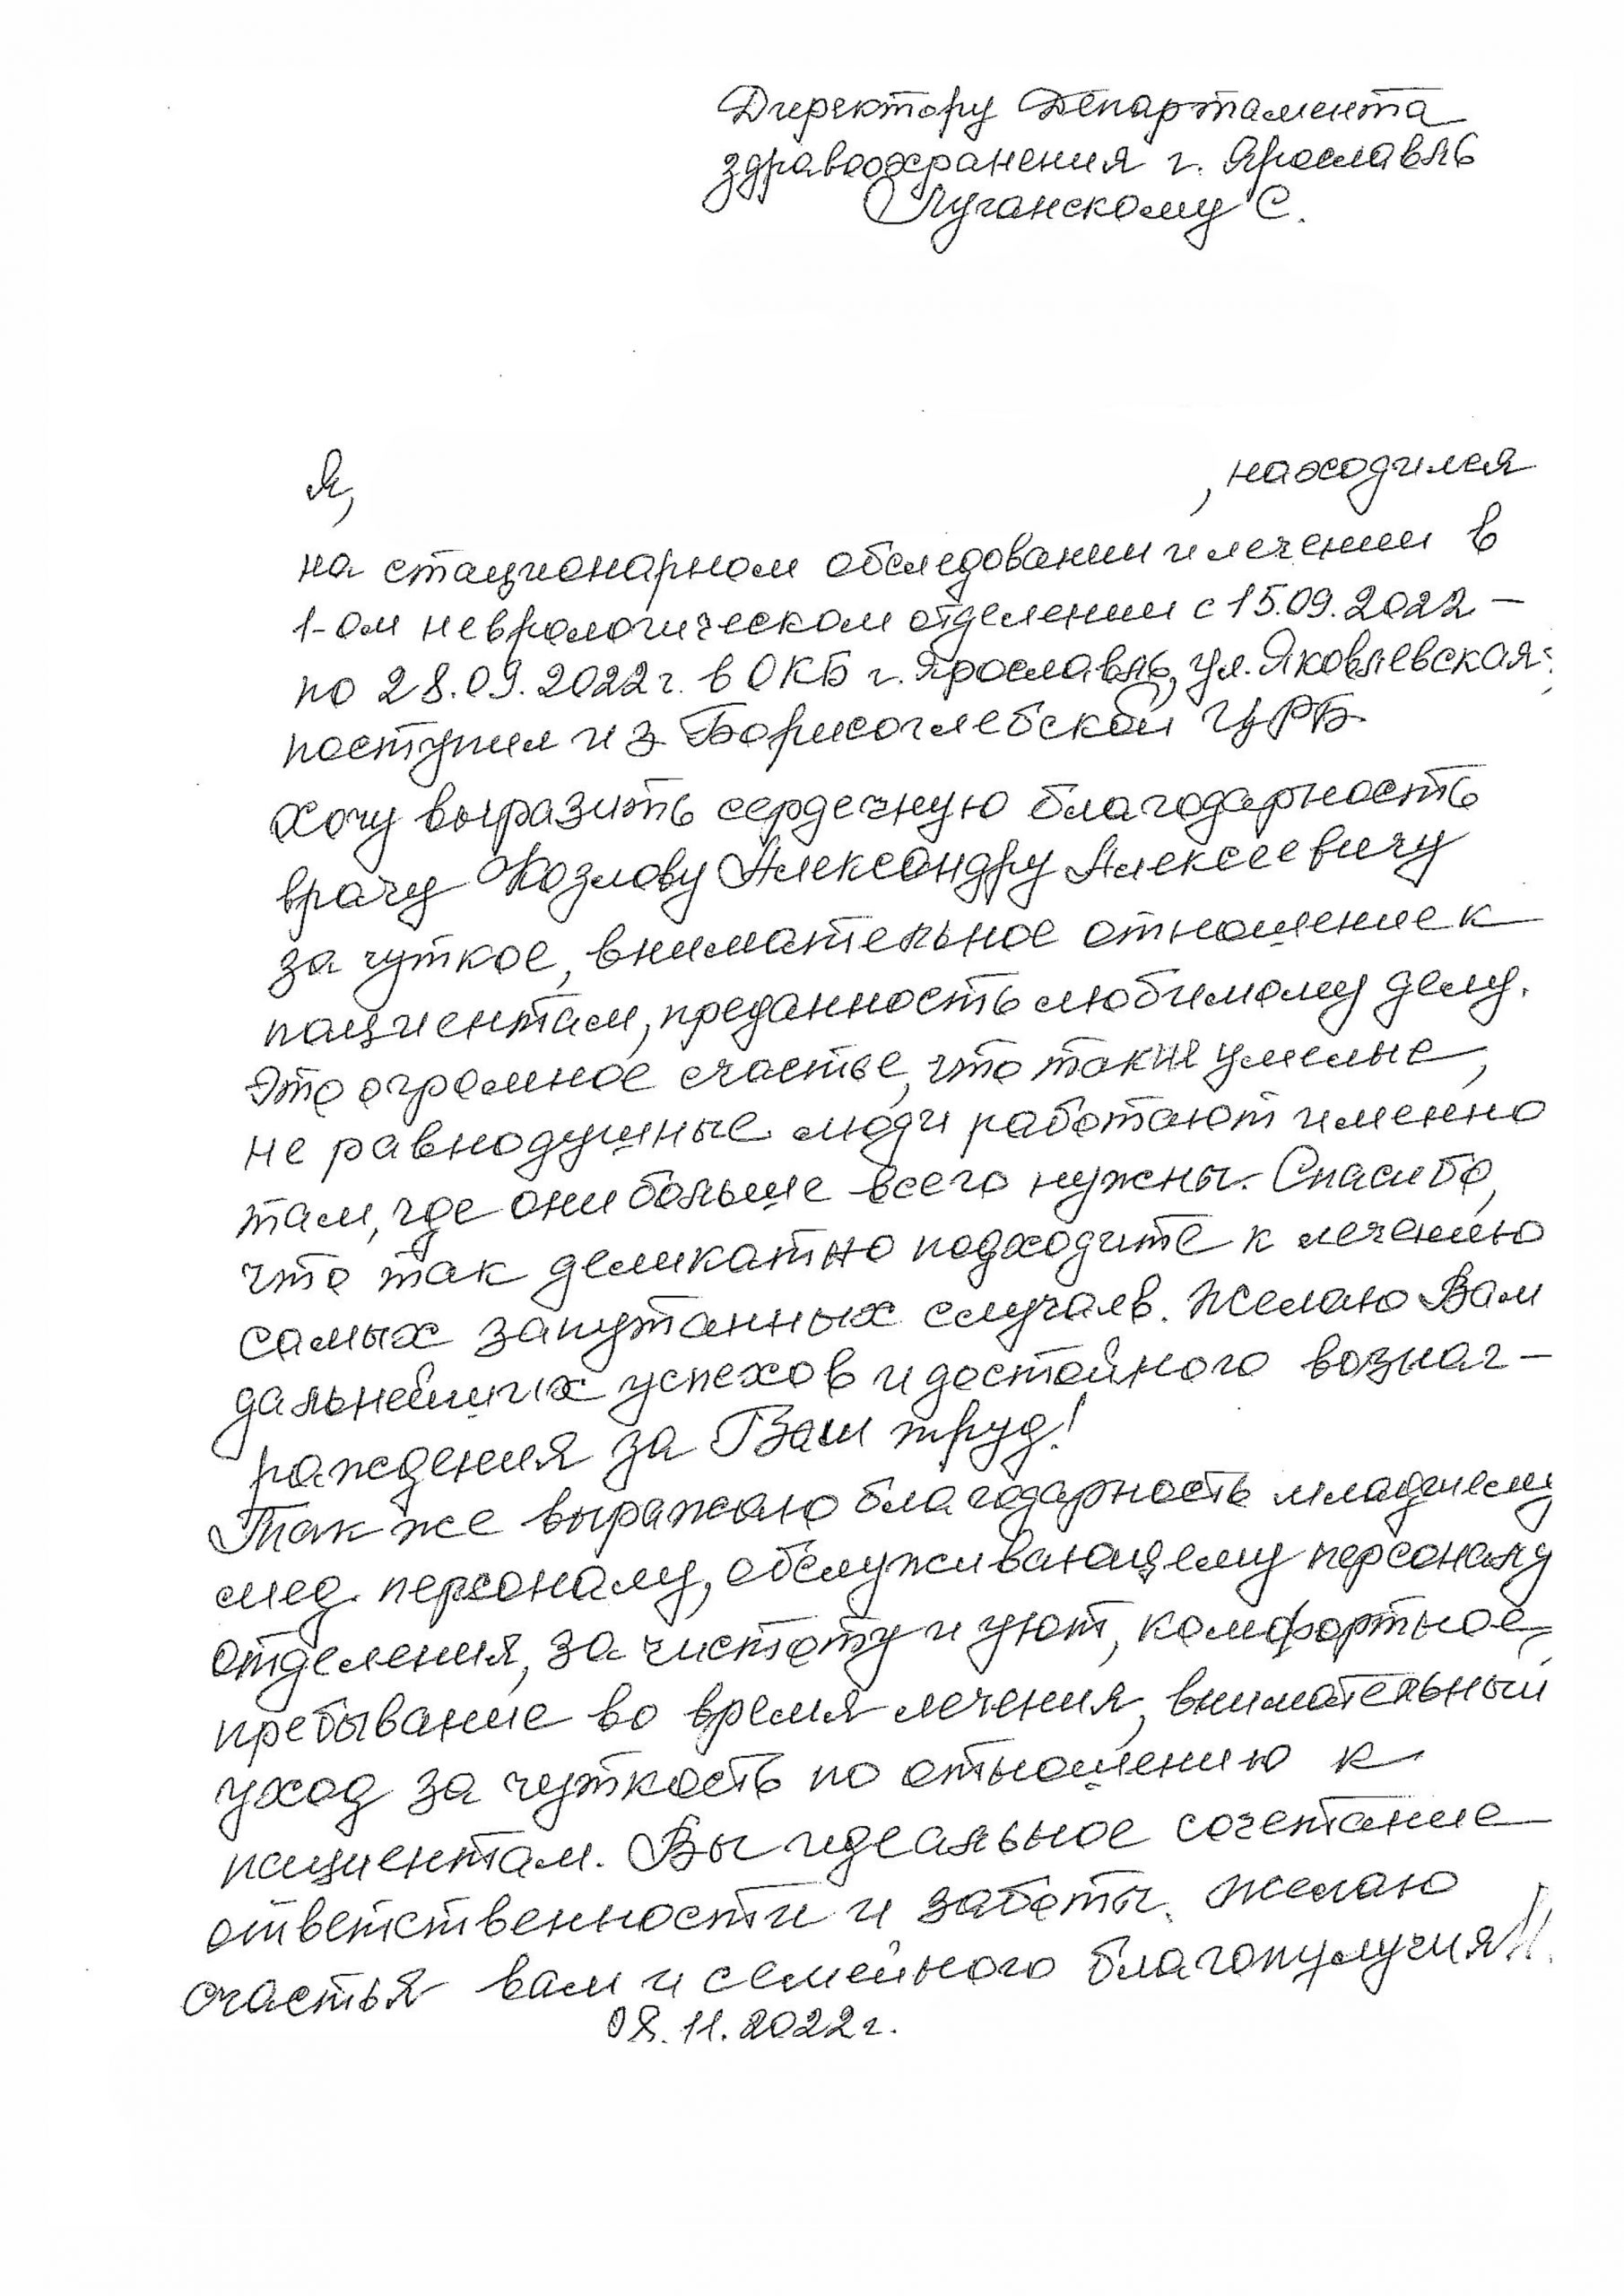 Директору Департамента
здравоохранения г. Ярославль
Луганскому С.
Я, , находился
на стационарном обследовании и лечении в
1-ом неврологическом отделении с 15.09.2022 –
по 28.09.2022 г. в ОКБ г. Ярославль, ул. Яковлевская
поступил из Борисоглебской ЦРБ
Хочу выразить сердечную благодарность
врачу Козлову Александру Алексеевичу
за чуткое, внимательное отношение к
пациентам, преданность любимому делу.
Это огромное счастье, что такие умелые,
не равнодушные люди работают именно
там, где они больше всего нужны. Спасибо,
что так деликатно подходите к лечению
самых запутанных случаев. Желаю Вам
дальнейших успехов и достойного вознаг-
раждения за Ваш труд!
Так же выражаю благодарность младшему
мед. персоналу, обслуживающему персоналу
отделения, за чистоту и уют, комфортное
пребывание во время лечения, внимательный
уход за чуткость по отношению к
пациентам. Вы идеальное сочетание
ответственности и заботы. Желаю
счастья вам и семейного благополучия!!
08.11.2022 г.